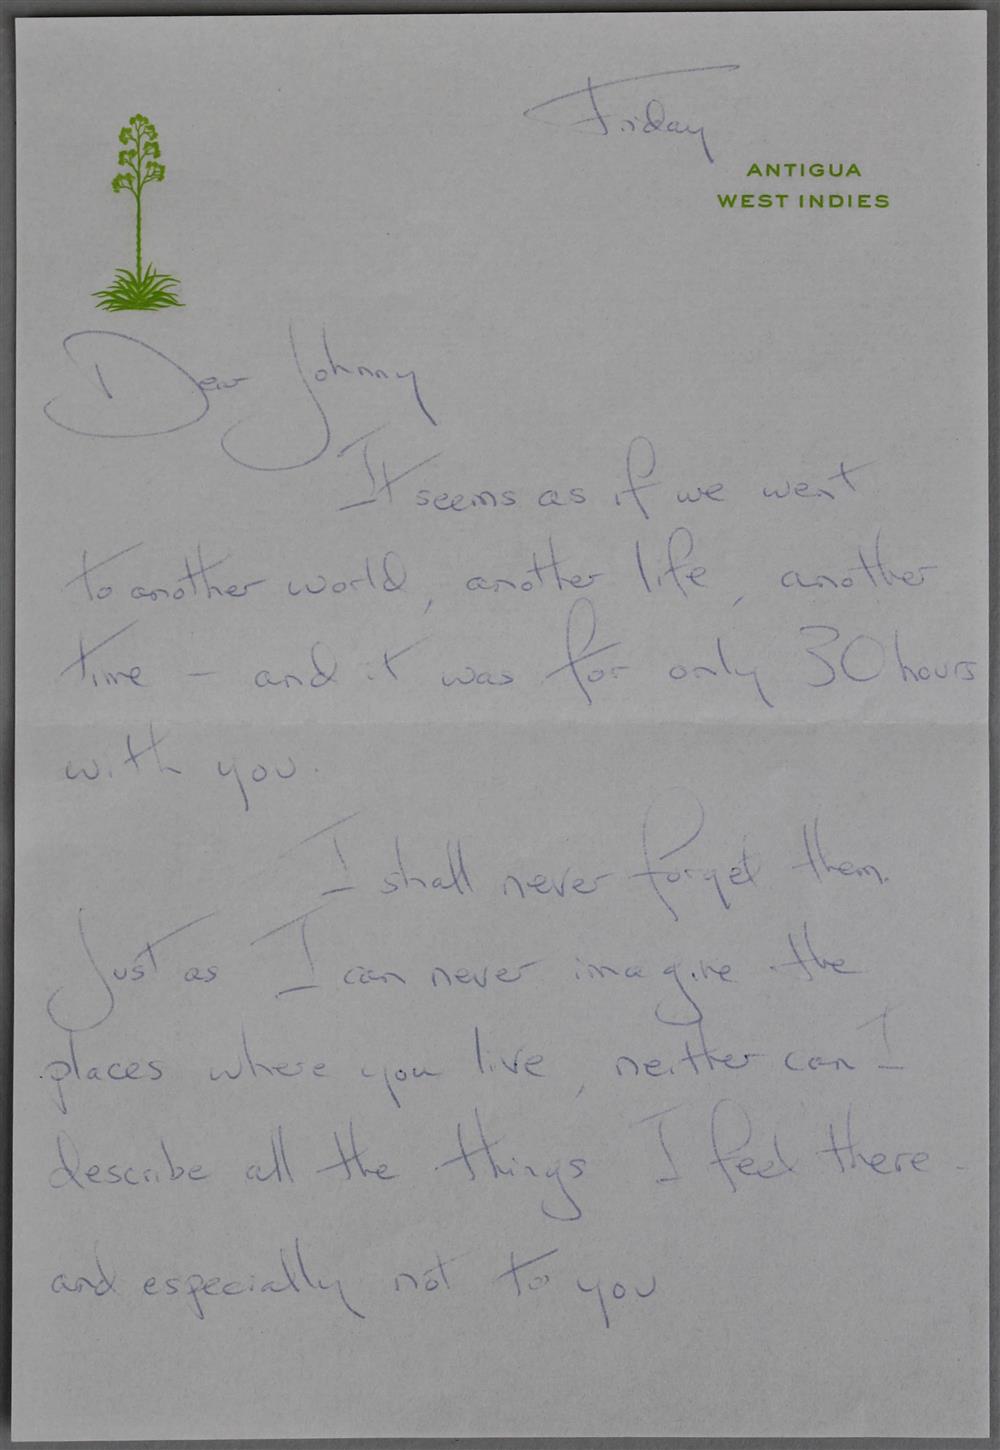 Friday
ANTIGUA
WEST INDIES
Dear Johnny
It seems as if we went
to another world, another life, another
time – and it was for only 30 hours
with you.
I shall never forget them.
Just as I can never imagine the
places where you live, neither can I
describe all the things I feel there -
and especially not to you